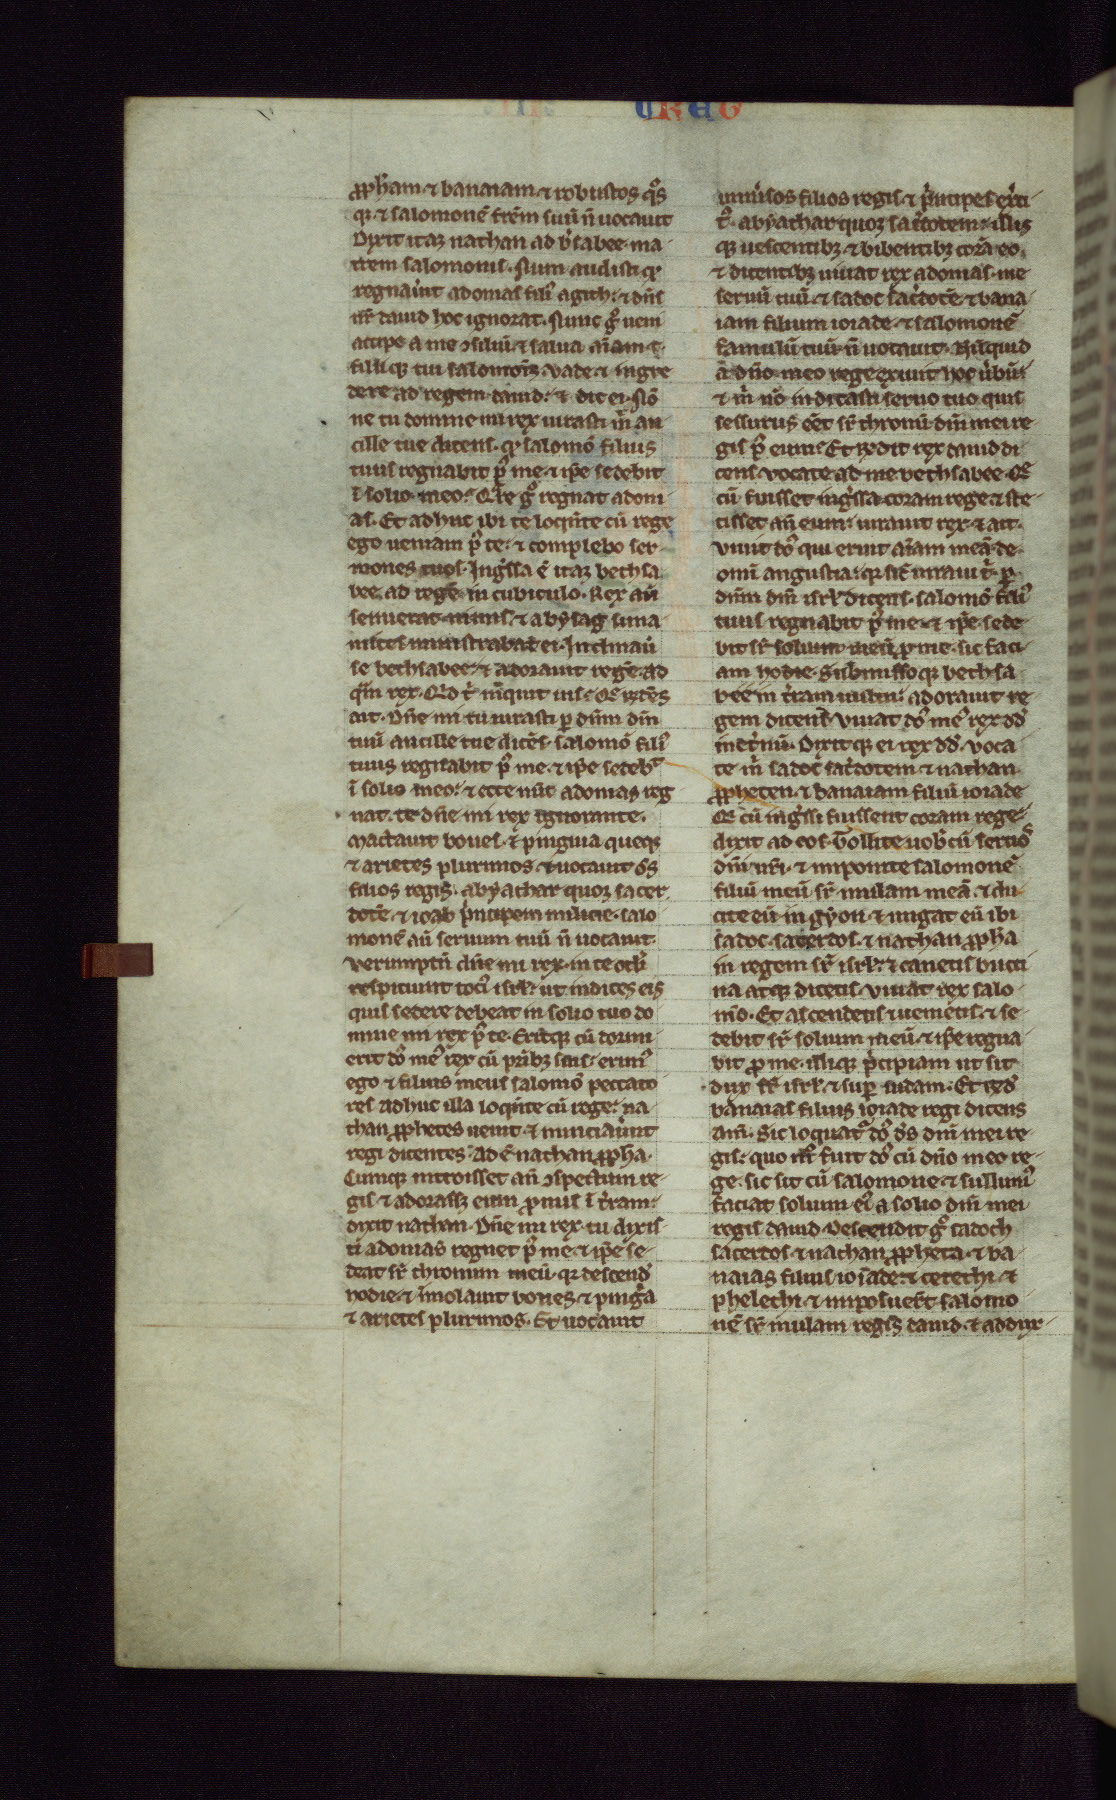 REG
ꝓph̄am ⁊ banaiam ⁊ robustos q̊s
qꝫ ⁊ salomonē frēm suū n̄ uocauit
Dixit itaqꝫ nathan ad b̾sabee ma
trem salomonis. Num audisti qꝫ
regnau̾it adonias fili᷒ agith. ⁊ dn̄s
nr̄ dauid hoc ignorat. Nunc g̊ ueni
accipe a me ↄsiliū ⁊ salua aīam t.
filiiqꝫ tui salomoīs. Uade ⁊ ingre
dere ad regem dauid. ⁊ dic ei. Nō
ne tu domine mi rex iurasti m̄ an
cille tue dicens. qꝫ salomō filius
tuus regnabit p᷒ me ⁊ ip̄e sedebit
ī solio meo. Q̄re g̊ regnat adoni
as. Et adhuc ibi te loqn̄te cū rege
ego ueniam p᷒ te. ⁊ complebo ser
mones tuos. Ing̾ssa ē itaqꝫ bethsa
bee ad regē in cubiculo. Rex aū
senuerat nimis. ⁊ abysag suna
mites ministrabat ei. Inclinauit
se bethsabee. ⁊ adorauit regē. Ad
q̄m rex. Qd t̾ inquit uis. Que rn̄dēs
ait. Dn̄e mi tu iurasti p dn̄m dm̄
tuū ancille tue dicēs. salomō fili᷒
tuus regnabit p᷒ me. ⁊ ip̄e sedebit
ī solio meo. ⁊ ecce nūc adonias reg
nat. te dn̄e mi rex ignorante.
Mactauit boues. ⁊ pinguia queqꝫ
⁊ arietes plurimos. ⁊ uocauit om̄s
filios regis. abyathar quoqꝫ sacer
dotē. ⁊ ioab p̾ncipem milicie. salo
monē aū seruum tuū n̄ uocauit.
Uerumptn̄ dn̄e mi rex. in te oc̄li
respiciunt toci᷒ isrl̄. ut indices eis
quis sedere debeat in solio tuo do
mine mi rex p᷒ te. Eritqꝫ cū dormi
erit do᷒ me᷒ rex cū pr̄ibꝫ suis. erim᷒
ego ⁊ filius meus salomō peccato
res. Adhuc illa loqn̄te cū rege. na
than ꝓphetes uenit. ⁊ nunciau̾nt
regi dicentes. Adē nathan ꝓph̄a.
Cumqꝫ introisset an̄ ↄspectum re
gis ⁊ adorassꝫ eum pronus ī t̾ram.
dixit nathan. Dn̄e mi rex tu dixis
ti adonias regnet p᷒ me. ⁊ ip̄e se
deat sr̄ thronum meū. qꝫ descend̾
hodie. ⁊ ī̄molauit boues ⁊ pinḡa
⁊ arietes plurimos. Et uocauit
uniu̾sos filios regis. ⁊ p̾ncipes ex̾ci
t᷒. abyathar quoqꝫ sac̾dotem. illis
qꝫ uescentibꝫ ⁊ bibentibꝫ corā eo.
⁊ dicentibꝫ uiuat rex adonias. me
seruū tuū. ⁊ sadoc sac̾dotē. ⁊ bana
iam filium ioiade. ⁊ salomonē
famulū tuū n̄ uocauit. Nūquid
a dn̄o meo rege exiuit hoc u̾bū.
⁊ m̄ nō indicasti seruo tuo quis
sessurus eēt sr̄ thronū dn̄i mei re
gis p᷒ eum. Et rn̄dit rex dauid di
cens. Vocate ad me bethsabee. Que
cū fuisset ing̾ssa coram rege ⁊ ste
tisset an̄ eum. iurauit rex ⁊ ait.
Viuit do᷒ qui eruit aīam meā de
omī angustia. qꝫ sic̄ iuraui t̾ p
dn̄m dm̄ isrl̄ dicens. salomō fili᷒
tuus regnabit p᷒ me. ⁊ ip̄e sede
bit sr̄ solium meū pro me. sic faci
am hodie. Submissoqꝫ bethsa
bee in t̾ram uultu. adorauit re
gem dicens. Viuat do᷒ me᷒ rex dd̄
inet̾nū. Dixitqꝫ ei rex dd̄. Voca
te m̄ sadoc sac̾dotem ⁊ nathan
ꝓpheten. ⁊ banaiam filiū ioiade
Qui cū ing̾ssi fuissent coram rege
dixit ad eos. Tollite uobc̄ū seruos
dn̄i ur̄i. ⁊ imponite salomonē
filiū meū sr̄ mulam meā. ⁊ du
cite eū in gyon. ⁊ ungat eū ibi
sadoc sacerdos. ⁊ nathan ꝓph̄a
in regem sr̄ isrl̄. ⁊ canetis bucci
na atqꝫ dicetis. Viuat rex salo
mō. Et ascendetis ⁊ uenietis. ⁊ se
debit sr̄ solium meū. ⁊ ip̄e regna
bit pro me. illiqꝫ p̾cipiam ut sit
dux sr̄ isrl̄. ⁊ sup iudam. Et rn̄d̾
banaias filius ioiade regi dicens
am̄. Sic loquat᷑ do᷒ ds̄ dn̄i mei re
gis. quo m̊ fuit do᷒ cū dn̄o meo re
ge. sic sit cū salomone. ⁊ sullimi᷒
faciat solium ei᷒ a solio dn̄i mei
regis dauid. Descendit g̊ sadoch
sacerdos. ⁊ nathan ꝓpheta. ⁊ ba
naias filius ioiade. ⁊ cerethi ⁊
phelethi. ⁊ imposuer̄t salomo
nē sr̄ mulam regis dauid. ⁊ addux